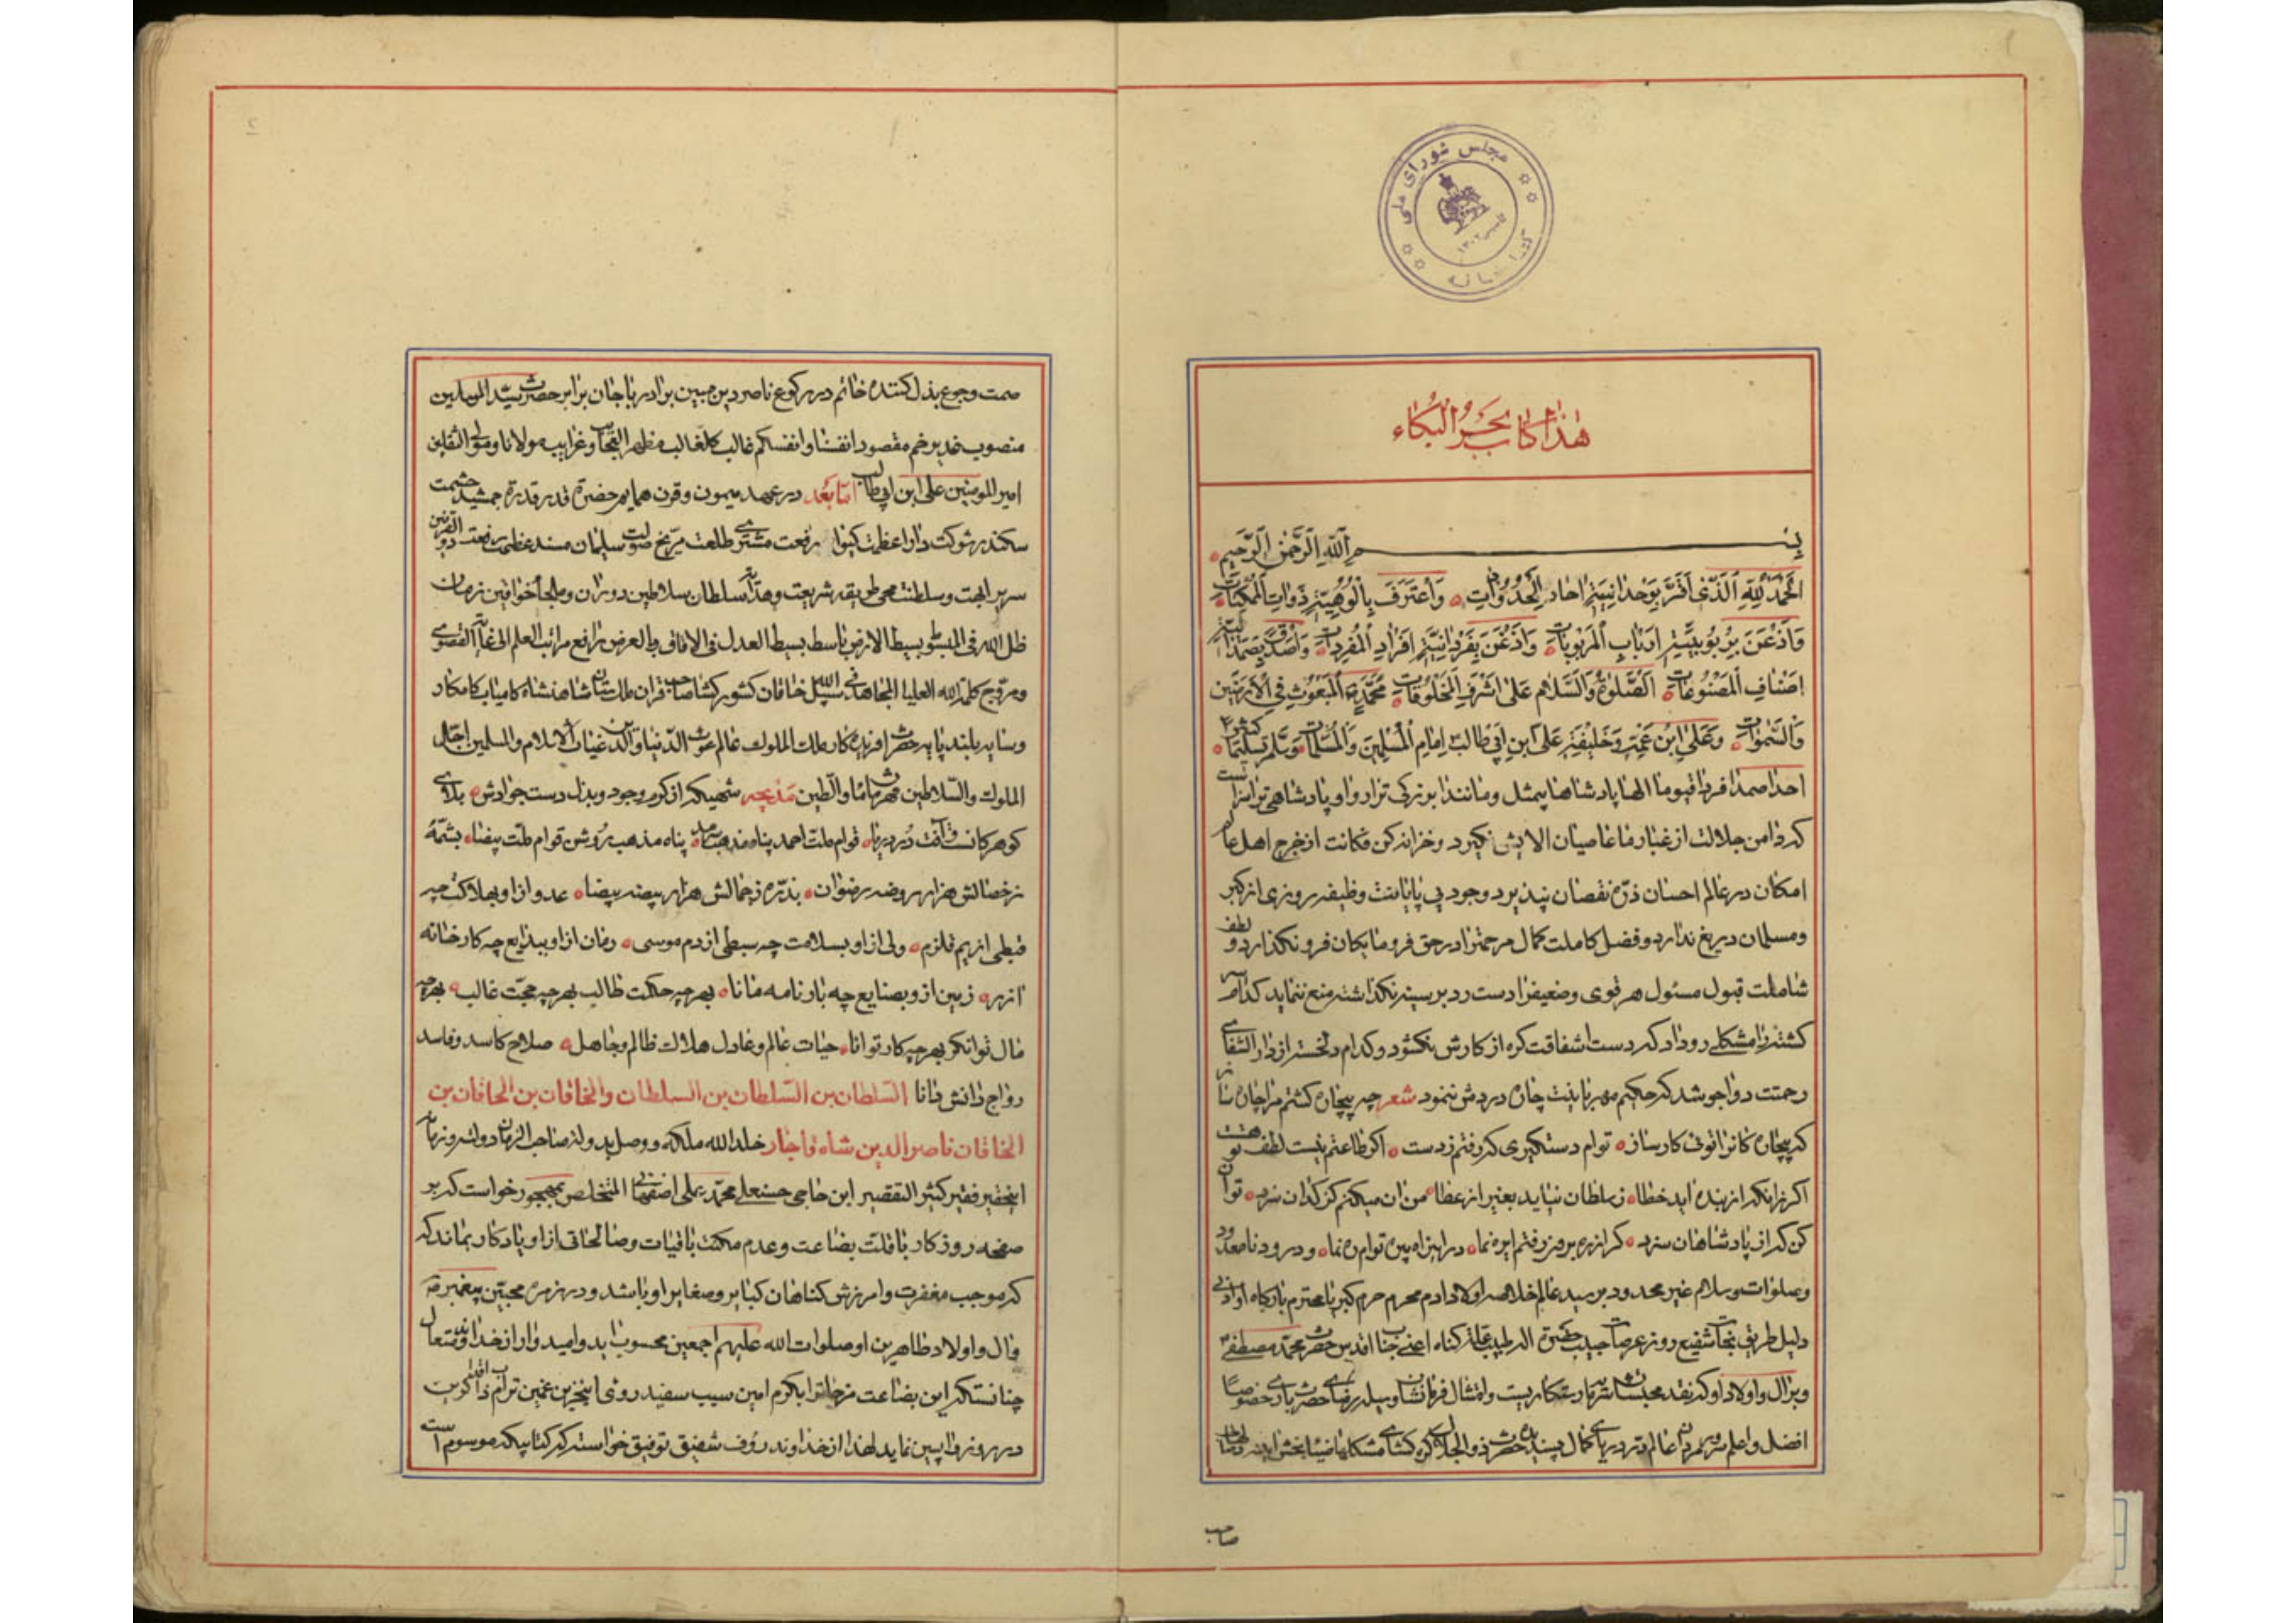 مجلس شورای ملی
کتابخانه
تأسیس ۱۳۰۲
هذا کتاب بحر البکاء
بسم الله الرحمن الرحیم
الحمد لله الذی اقر بوحدانیته احاد الحدوثات واعترف بالوهیته ذوات الممکنات
واذعن بربوبیته ارباب المربوبات واذعن بفردانیته افراد المفردات واصدق بصمدانیته
اصناف المصنوعات الصلوة والسلام علی اشرف المخلوقات محمد المبعوث فی الارضین
والسموات وعلی ابن عمه وخلیفته علی ابن ابی طالب امام المسلمین والمسلمات وسلم تسلیما کثیرا
احدا صمدا فردا قیوما الها پادشاها بیمثل ومانندا بزرکی ترا روا و پادشاهی ترا سزاست
که دامن جلالت از غبار ما عاصیان الایش نکیرد و خزانه کن فکانت از خرج اهل عالم
امکان در عالم احسان ذره نقصان نپذیرد وجود بی پایانت وظیفه روزی از کبر
ومسلمان دریغ ندارد و فضل کاملت کمال مرحمت را در حق فرومایکان فرو نکذارد و لطف
شاملت قبول مسئول هر قوی وضعیف را دست رد بر سینه نکذاشته منع ننماید کدام سر
کشته را مشکلی رو داد که دست شفاقت کره از کارش نکشود و کدام دلخسته از دار الشفای
رحمتت دواجو شد که حکیم مهربانیت چاره دردش ننمود شعر چه بیچاره کشتم مرا چاره ساز
که بیچاره کانرا توئی کارساز توام دستکیری که رفتم ز دست اکر طاعتم نیست لطف تو هست
اکر زانکه از بنده اید خطا ز سلطان نیاید بغیر از عطا من ان میکنم کز کدایان سزد تو ان
کن که از پادشاهان سزد کر از ره برون رفتم ایره نما در این راه پس توام ره نما و درود نامعدود
وصلوات وسلام غیر محدود بر سید عالم خلاصه اولاد ادم محرم حرم کبریا محترم بارکاه او ادنی
دلیل طریق نجات شفیع روز عرصات حبیب حضرت اله طبیب علت کناه اعنی جناب اقدس حضرت محمد مصطفی
وبر ال و اولاد او که نقد محبتشان سرمایه رستکاریست وامتثال فرمانشان وسیله رضای حضرت باری خصوصا
افضل واعلم سرور مردان عالم در دریای کمال پسندیده حضرت ذو الجلال کره کشای مشکلها ضیابخش
صاحب
۲
صمت وجوع بذل کننده خاتم در رکوع ناصر دین مبین برادر باجان برابر حضرت سید المرسلین
منصوب غدیر خم مقصود انفسنا وانفسکم غالب کل غالب مظهر العجایب وغرایب مولانا ومولی الثقلین
امیر المومنین علی ابن ابی طالب اما بعد در عهد میمون وقرن همایون حضرت قدر قدرت جمشید حشمت
سکندر شوکت دارا عظمت کیوان رفعت مشتری طلعت مریخ صولت سلیمان مسند عظمی رفعت ذو القرنین
سریر ابهت وسلطنت محی طریقه شریعت وهدایت سلطان سلاطین دوران وملجأ خواقین زمان
ظل الله فی المبسوط بسیط الارض باسط بسیط العدل فی الافاق والعرض رافع مراتب العلم الی غایة القصوی
ومروج کلمة الله العلیا المجاهد فی سبیل الله خاقان کشور کشا صاحب قران ملک ستان شاهنشاه کامیاب کامکار
وسایه بلند پایه حضرت افریده کار ملک الملوک عالم غوث الدنیا والدین غیاث الاسلام والمسلمین اجل
الملوک والسلاطین قهرمان الماء والطین مدیحه شهی که از کرم وجود وبذل دست جوادش بلای
کوهر کانست وآفت در دریا قوام ملت احمد پناه مذهب پناه مذهب روشن قوام ملت بیضا بشمهٔ
ز خصالش هزار روضه رضوان بذره ز جمالش هزار بیضه بیضا عدو از او بهلاکت چه
قبطی از یم قلزم ولی از او بسلامت چه سبطی از دم موسی زمان از او ببدایع چه کارخانه
ازر زمین از و بصنایع چه بارنامه مانا بهر چه حکمت طالب بهر چه حجت غالب بهر چه
مال توانکر بهر چه کار توانا حیات عالم وعادل هلاک ظالم وجاهل صلاح کاسد وفاسد
رواج دانش دانا السلطان بن السلطان بن السلطان والخاقان بن الخاقان بن
الخاقان ناصر الدین شاه قاجار خلد الله ملکه ووصل بدولة صاحب الزمان دولته وزمانه
اینحقیر فقیر کثیر التقصیر ابن حاجی حسنعلی محمد علی اصفهانی المتخلص بمهجور خواست که بر
صفحه روزکار باقلت بضاعت وعدم مکنت باقیات وصالحاتی از او یادکار بماند که
که موجب مغفرت وامرزش کناهان کبایر وصغایر او باشد ودر زمره محبین پیغمبر ص
وال واولاد طاهرین او صلوات الله علیهم اجمعین محسوب اید وامیدوار از خداوند متعال
چنانستکه این بضاعت مزجاة را بکرم امین سبب سفید روئی این حزین غمین تراب اقدام ذاکرین
در روز واپسین نماید لهذا از خداوند رؤف شفیق توفیق خواسته که کتابیکه موسوم است